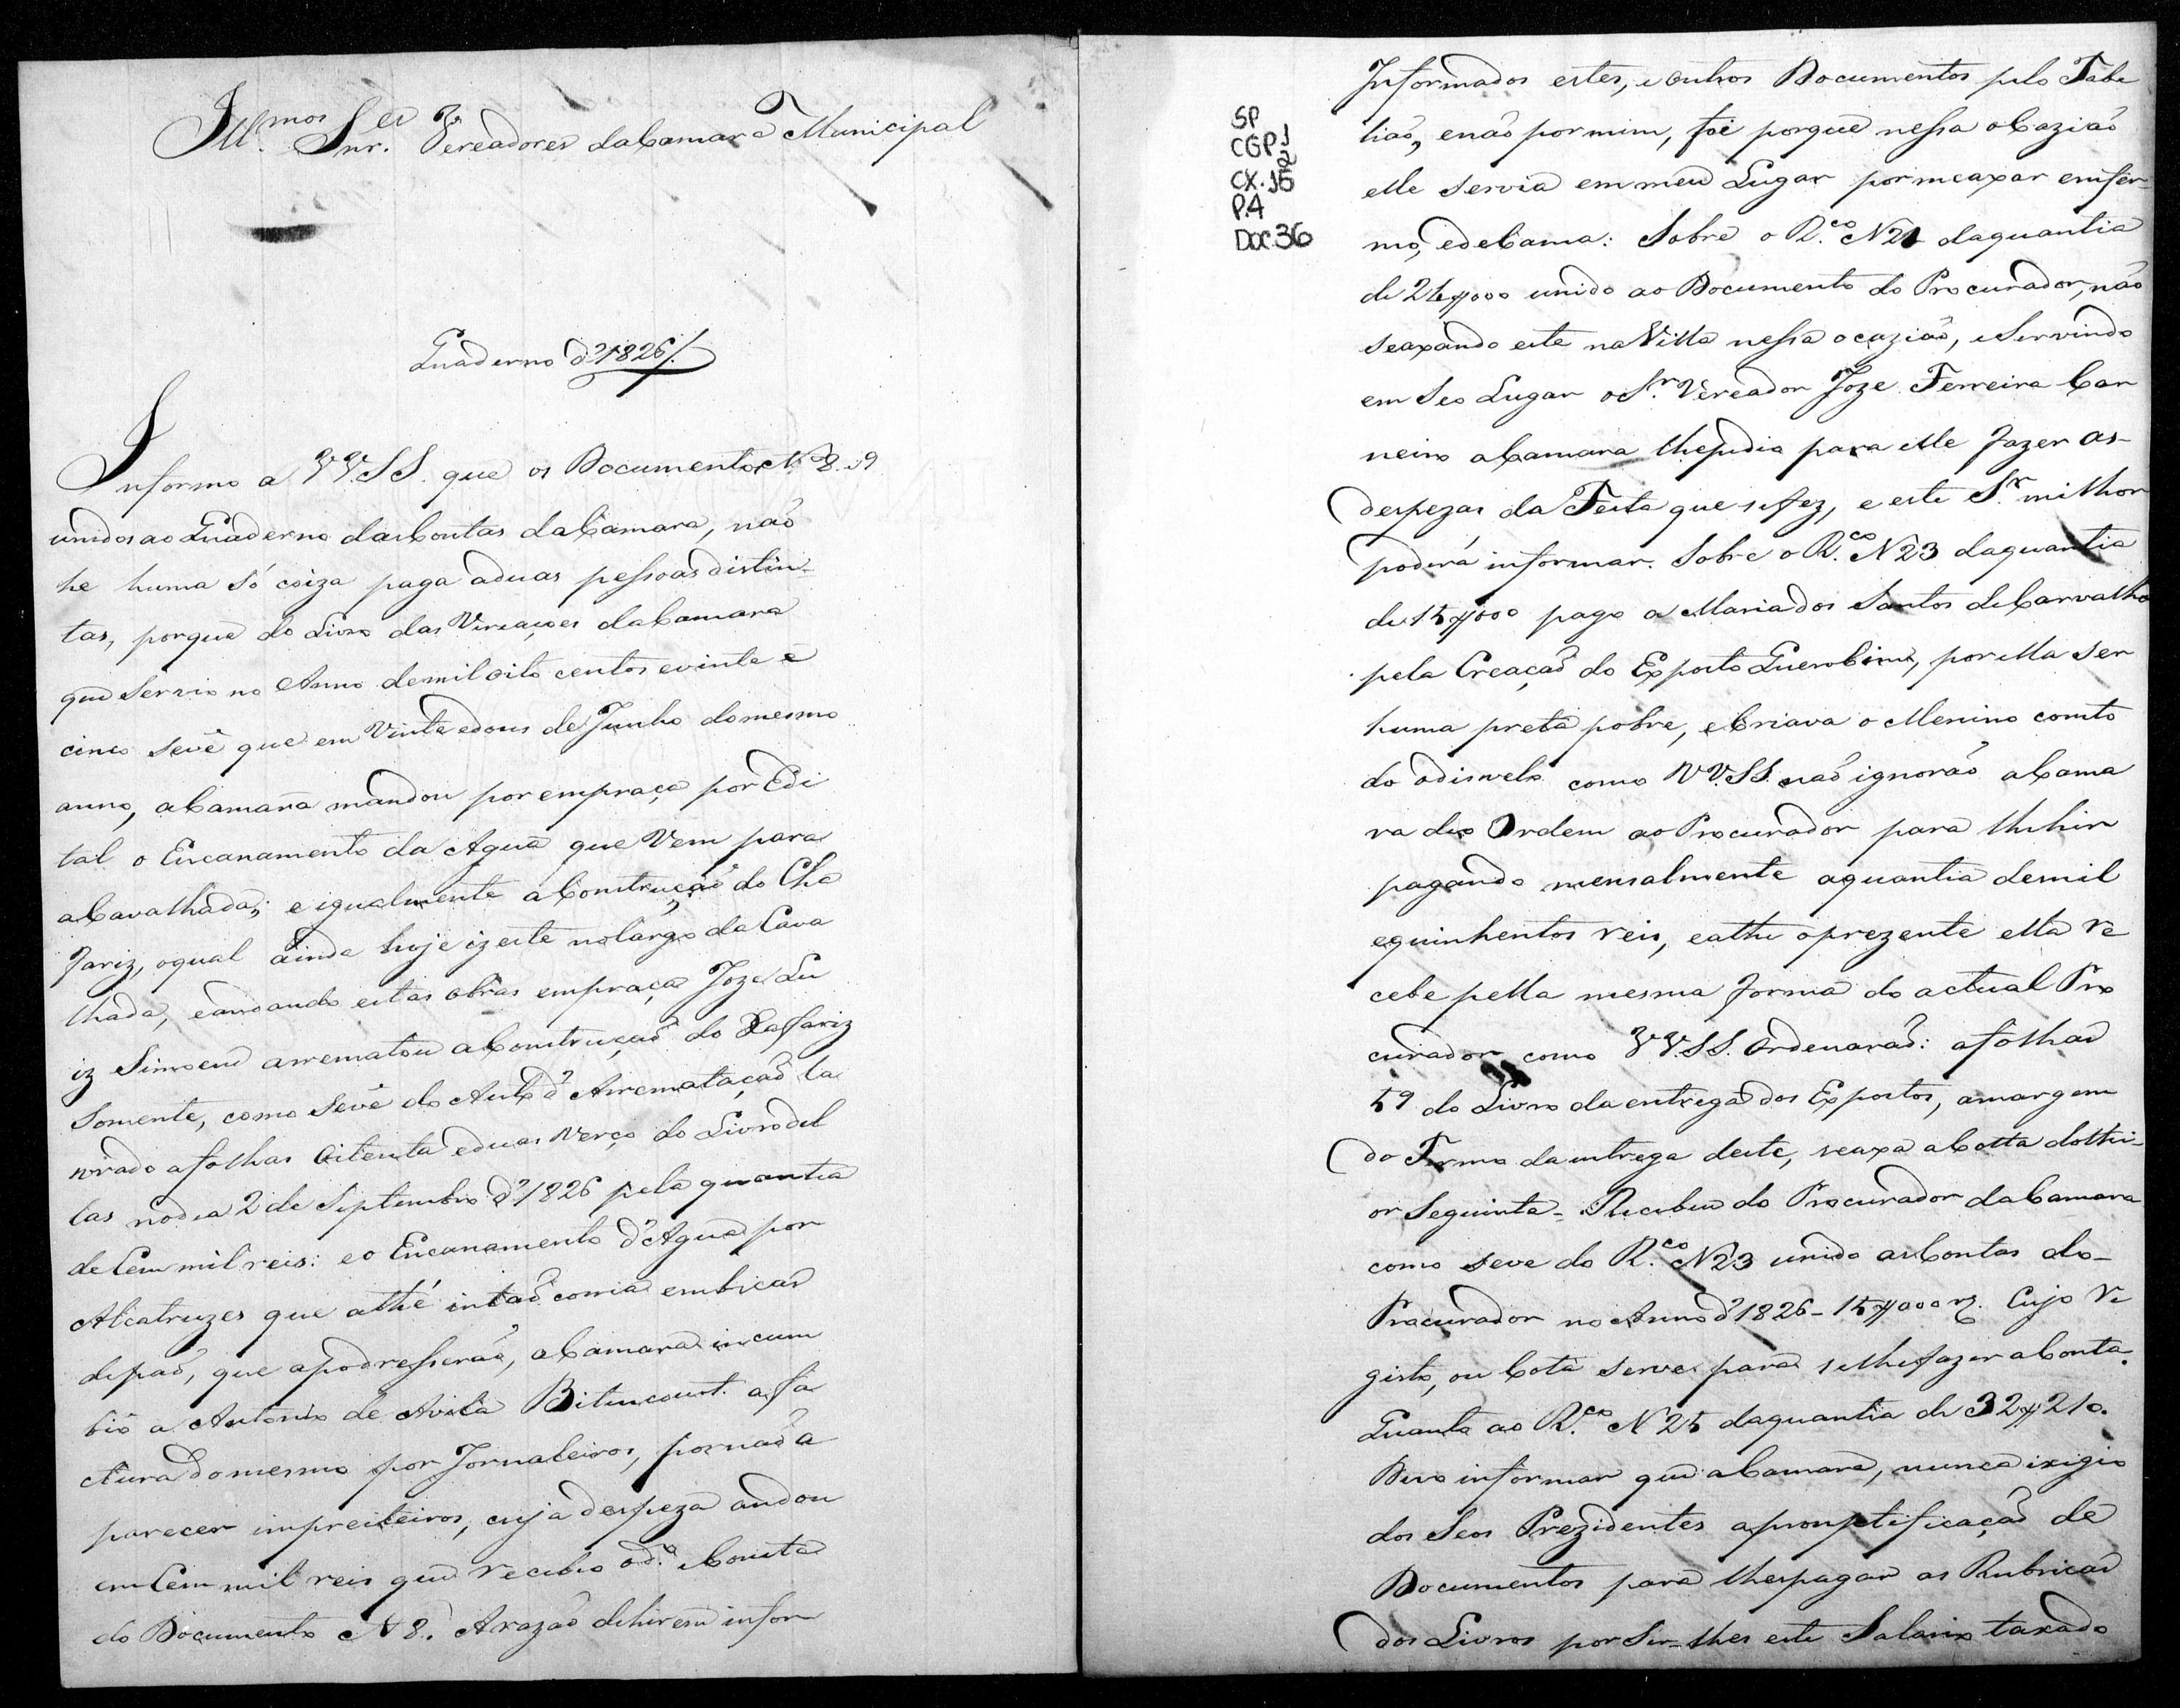 Ill.mos Snr.es Vereadores da Camara Municipal
Quaderno d'1826/.
Informo a VV.SS. que os Documentos N.os 8. i9
unidos ao Quaderno das Contas da Camara, naõ
he huma só coiza paga a duas pessoas distin-
tas, porque do Livro das Vereaçoes da Camara
que servio no Anno de mil oito centos e vinte e
cinco se vê que em Vinte e dous de Junho do mesmo
anno, a Camara mandou por em praça por Edi
tal o Encanamento da Agua que Vem para
a Cavalhada; e igualmente a Construçaõ do Cha
fariz, o qual ainda hoje izeste no largo da Cava
lhada, e andando estas obras em praça Joze Lu
iz Simoens arrematou a Construçaõ do Xaffariz
Somente, como se vê do Auto d'Arremataçaõ la
vrado a folhas Oitenta e duas Verço do Livro del
las no dia 2 de Septembro d'1826 pela quantia
de Cem mil reis: e o Encanamento d'Agua por
Alcatruzes que athé intaõ corria em bicas
de paõ, que apodresseraõ, a Camara incum
bio a Antonio de Avila Bitencourt a fa
ctura do mesmo por Jornaleiros, por naõ a
parecer impreiteiros, cuja despeza andou
em Cem mil reis que recebeo o d.o e Consta
do Documento N 8. A razaõ de hirem infor
SP
CGP1
CX.15 2
P.4
DOC.36
Informados estes, e outros Documentos pelo Tabe
liaõ, e naõ por mim, foi porque nessa oCaziaõ
elle servia em meu Lugar por me axar emfer-
mo, e de Cama: Sobre o R.co N21 da quantia
de 24$000 unido ao Documento do Procurador, naõ
se axando este na Villa nessa ocaziaõ, e Servindo
em Seo Lugar o S.r Vereador Joze Ferreira Car
neiro a Camara lhe pedia para elle fazer as-
despezas da Festa que se fez, e este S.r milhor
poderá informar. Sobre o R.co N23 da quantia
de 15$000 pago a Maria dos Santos de Carvalho
pela Creaçaõ do Exposto Querobino, por ella ser
huma preta pobre, e Criava o Menino com to
do o disvelo como VV.SS. naõ ignoraõ a Cama
ra deo Ordem ao Procurador para lhe hir
pagando mensalmente a quantia de mil
e quinhentos reis, e athe o prezente ella re
cebe pella mesma forma do actual Pro
curador como VV.SS. Ordenaraõ: a folhas
59 do Livro da entrega dos Expostos, a margem
do Termo da entrega deste, se axa a Cotta do thi-
or Seguinte - Recebeu do Procurador da Camara
como se ve do R.co N23 unido as Contas do-
Procurador no Anno d'1826 - 15$000 rs. Cujo Re
gisto, ou Cota serve para se lhe fazer a Conta.
Quanto ao R.co N25 da quantia de 32$210.
Devo informar que a Camara, nunca exigio
dos Seos Prezidentes a promptificaçaõ de
Documentos para lhes pagar as Rubricas
dos Livros por Ser-lhes este Salario taxado